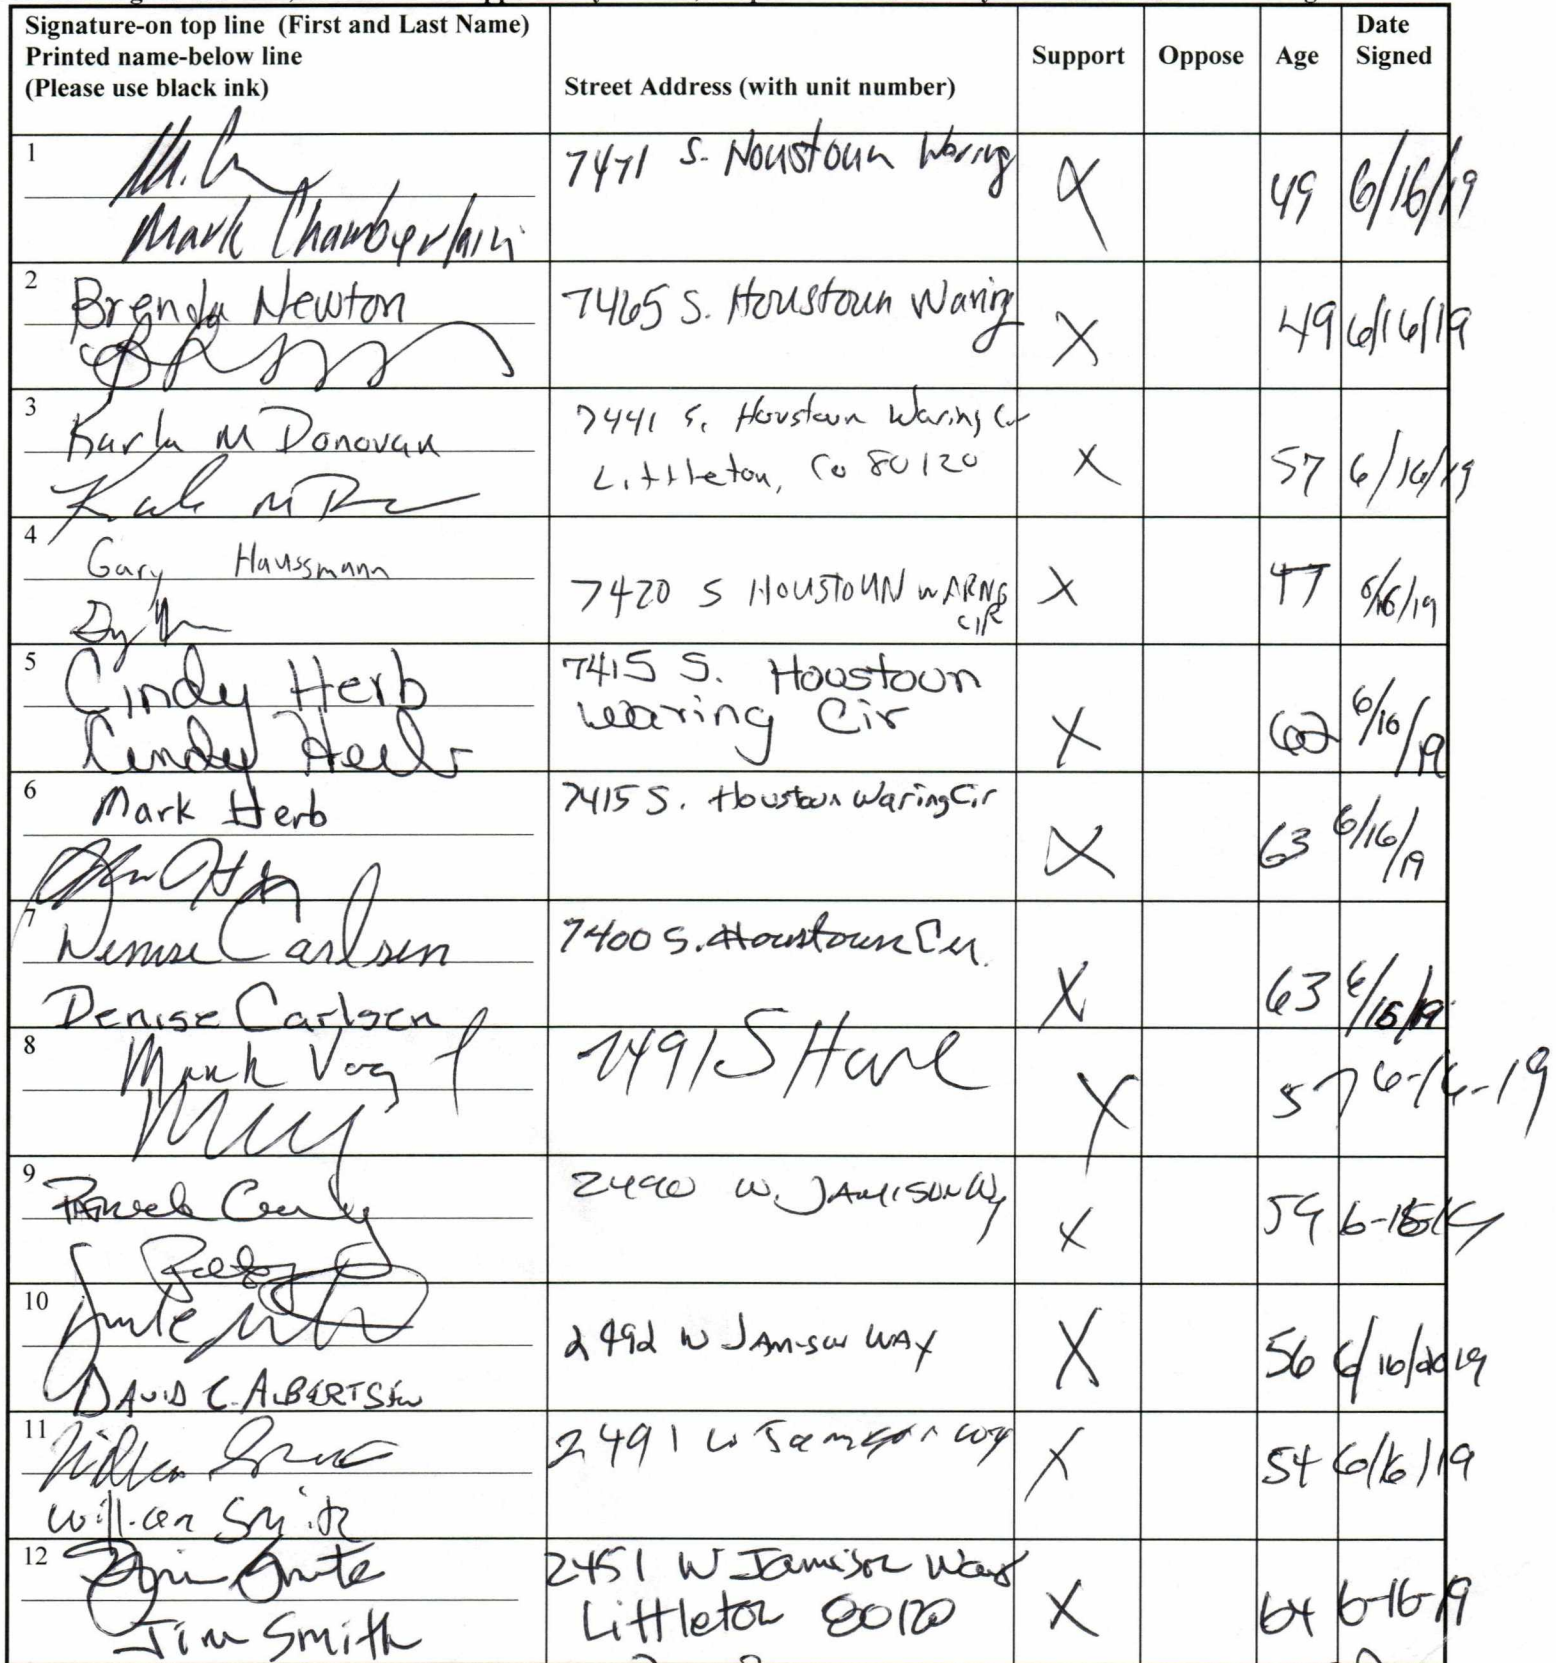 Signature-on top line (First and Last Name)
Printed name-below line
(Please use black ink)
Street Address (with unit number)
Support
Oppose
Age
Date
Signed
1
M. C
Mark Chamberlain
7471 S. Houstoun Waring
X
49
6/16/19
2
Brenda Newton
7465 S. Houstoun Waring
X
49
6/16/19
3
Karla M Donovan
7441 S. Houstoun Waring Cir
Littleton, Co 80120
X
57
6/16/19
4
Gary Haussmann
7420 S HOUSTOUN WARNG
CIR
X
47
6/16/19
5
Cindy Herb
Cindy Herb
7415 S.  Houstoun
Waring Cir
X
62
6/16/19
6
Mark Herb
7415 S. Houstoun Waring Cir
X
63
6/16/19
7
Denise Carlsen
Denise Carlsen
7400 S. Houstoun Cir.
X
63
6/16/19
8
Mark Vogt
7491 S
X
57
6-16-19
9
2490 W. JAMISON Wy
X
59
10
DAVID C. ALBERTSEN
2492 W JAMISON WAY
X
56
6/16/2019
11
William Smith
William Smith
2491 W Jamison way
X
54
6/16/19
12
Jim Smith
Jim Smith
2451 W Jamison Way
Littleton 80120
X
64
6-16-19